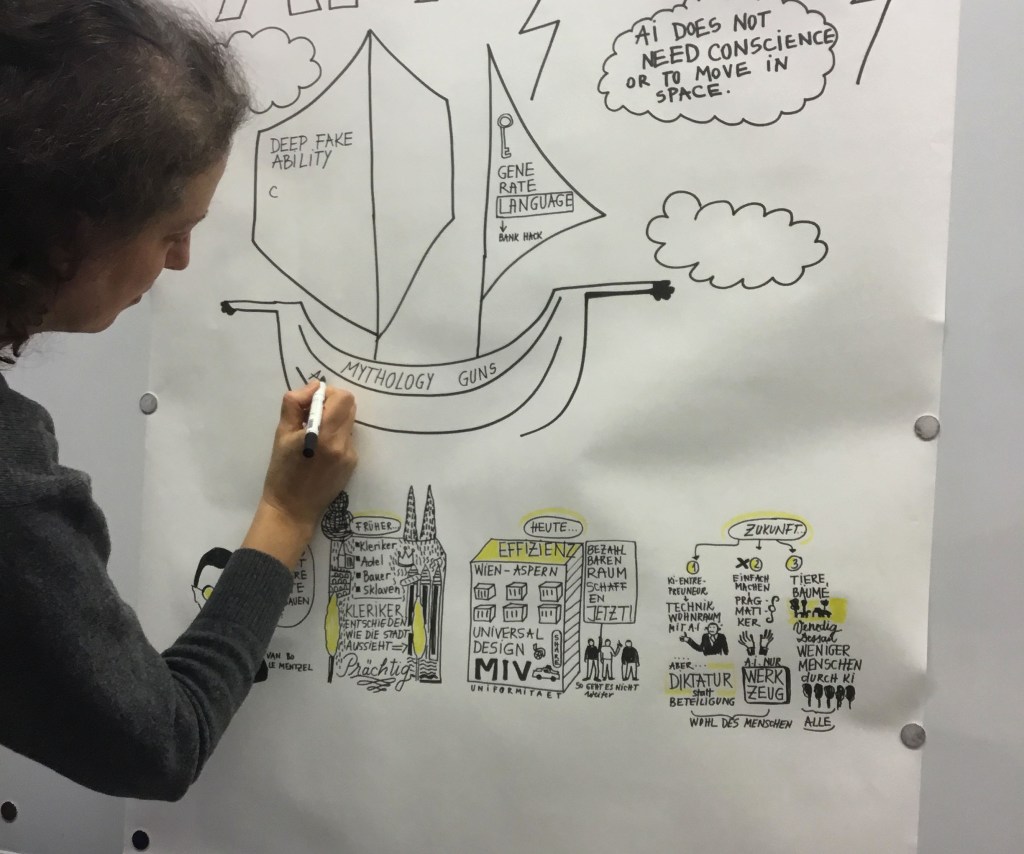 AI DOES NOT
NEED CONSCIENCE
OR TO MOVE IN
SPACE.
DEEP FAKE
ABILITY
C
GENE
RATE
LANGUAGE
↓
BANK HACK
MYTHOLOGY GUNS
VAN BO
LE MENTZEL
FRÜHER...
Kleriker
Adel
Bauer
Sklaven
KLERIKER
ENTSCHIEDEN
WIE DIE STADT
AUSSIEHT
Prächtig
HEUTE...
EFFIZIENZ
WIEN-ASPERN
UNIVERSAL
DESIGN
SHARE
MIV
UNIFORMITAET
BEZAHL
BAREN
RAUM
SCHAFF
EN
JETZT!
SO GEHT ES NICHT
weiter
ZUKUNFT...
1
KI-ENTRE-
PRENEUR
TECHNIK
WOHNRAUM
MIT AI
ABER...
DIKTATUR
statt
BETEILIGUNG
2
EINFACH
MACHEN
PRÄG
MATI
KER
§
A.I. NUR
WERK
ZEUG
WOHL DES MENSCHEN
3
TIERE,
BÄUME
Venedig
Dessau
WENIGER
MENSCHEN
durch KI
ALLE